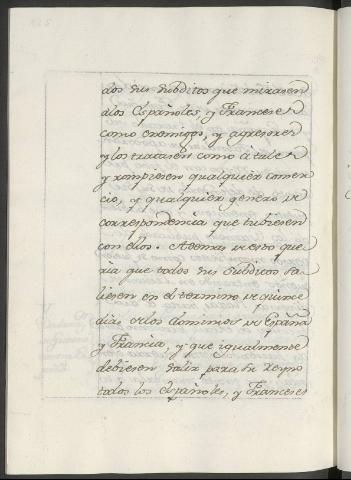 dos sus subditos que mirasen
alos Españoles, y Franceses
como enemigos, y agresores
y los tratasen como á tales
y rompiesen qualquier comer
cio, y qualquier genero de
correspondencia que tubiesen
con ellos. Ademas de esto que
ria que todos sus subditos sa
liesen en el termino de quince
dias de los dominios de España
y Francia, y que igualmente
debiesen salir para su Reyno
todos los Españoles, y Franceses